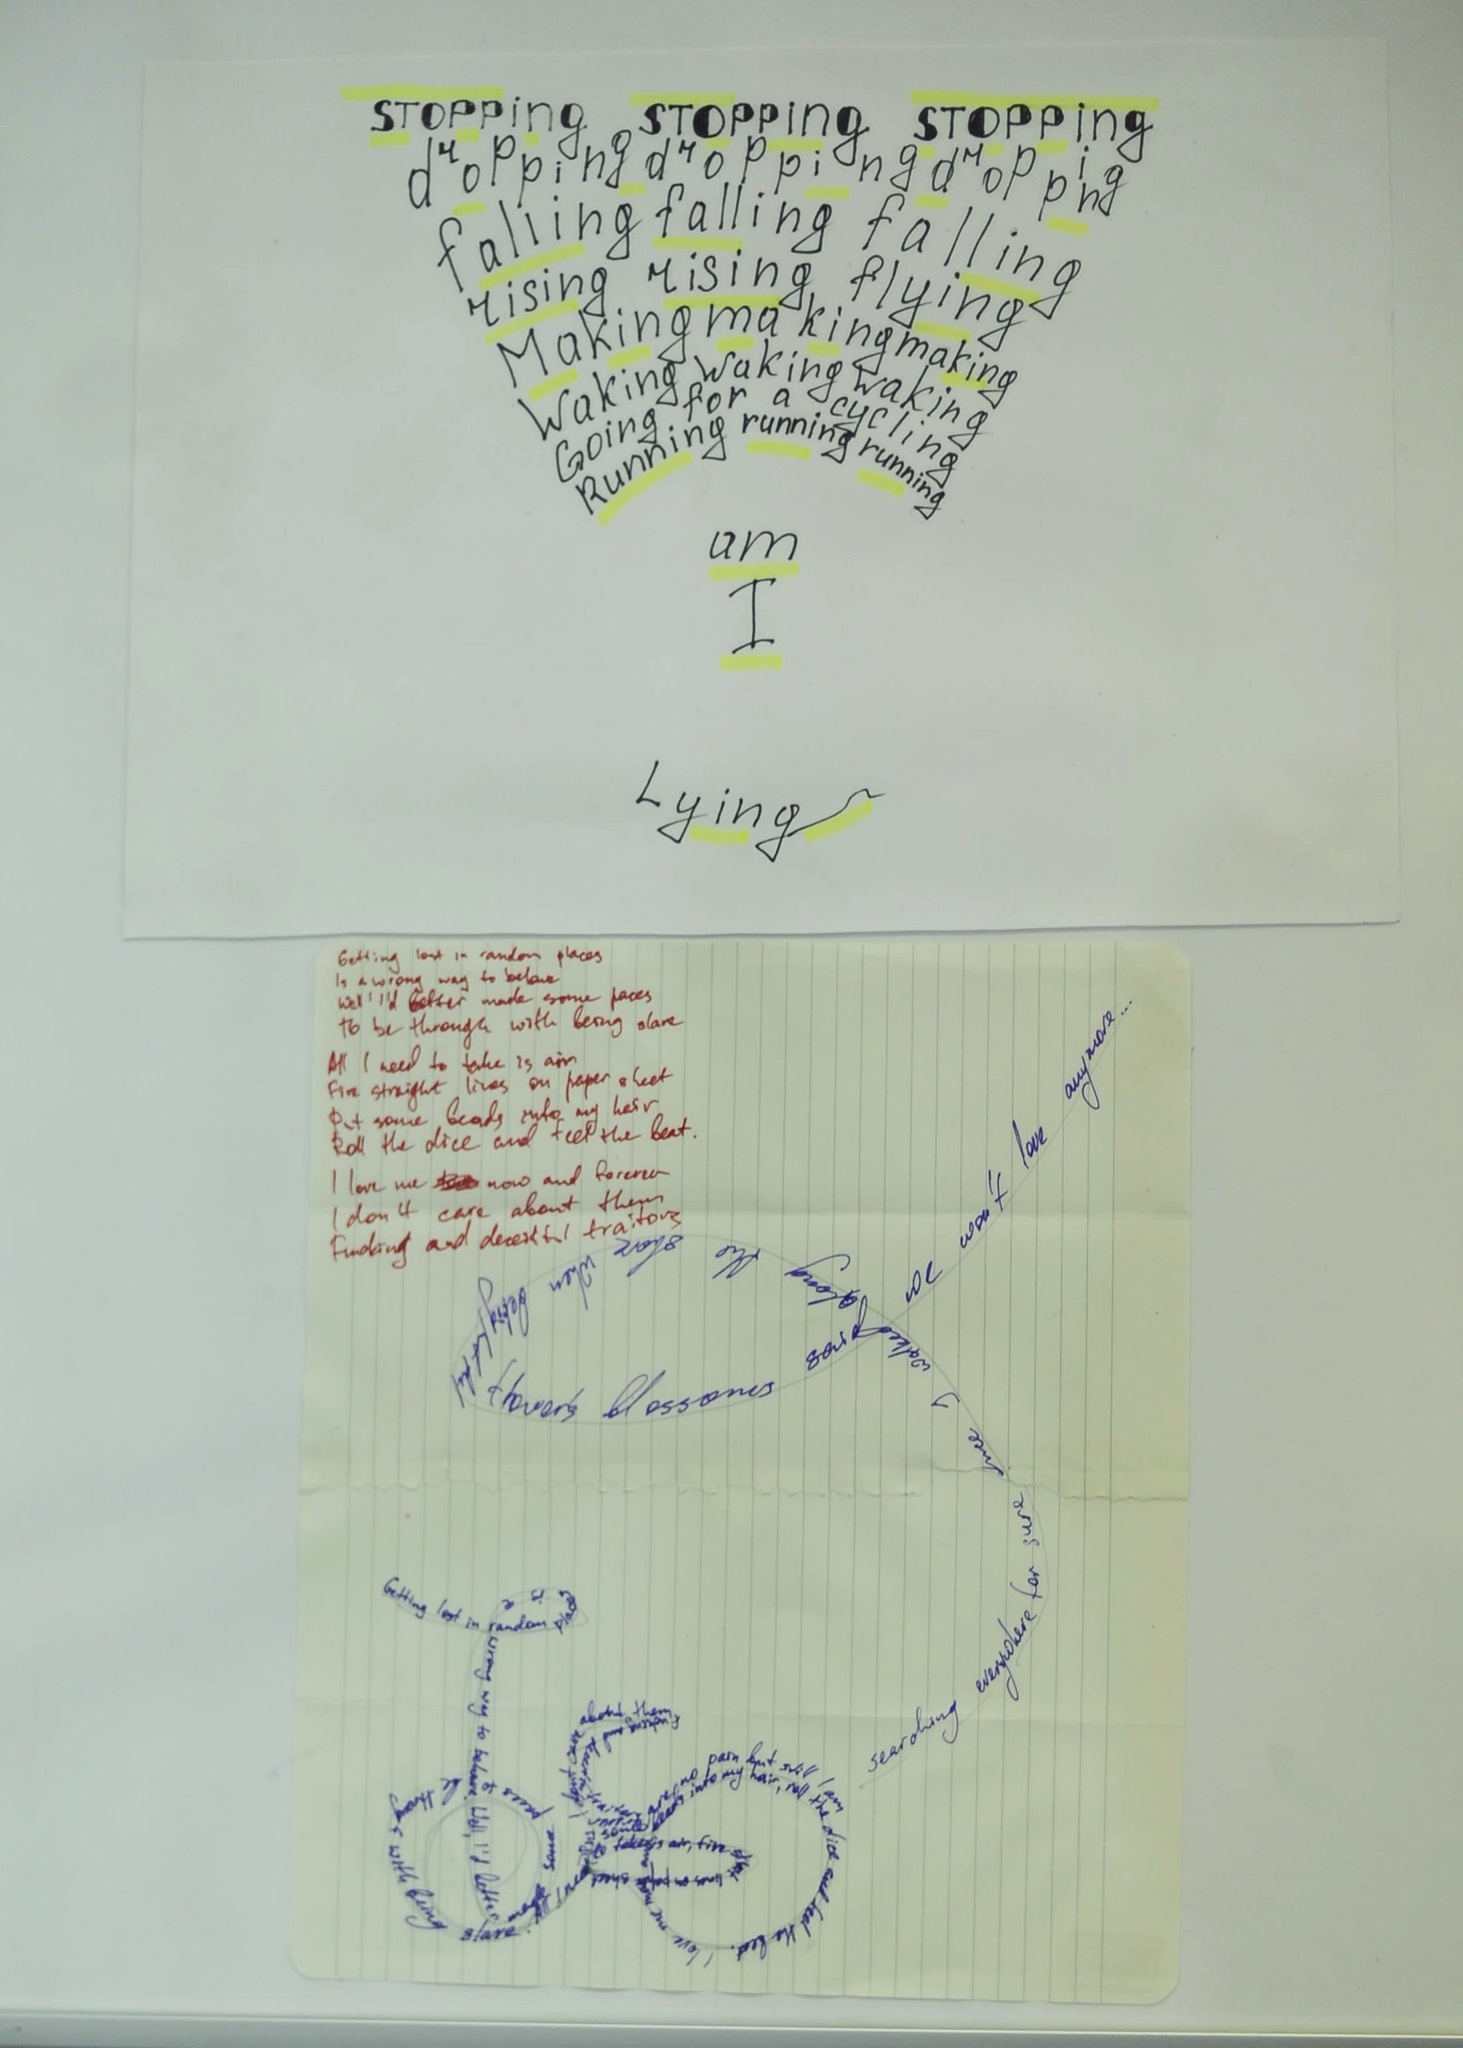 STOPPing STOPPing STOPPing
dropping dropping dropping
falling falling falling
rising rising flying
Making making making
Waking waking waking
Going for a cycling
Running running running
am
I
Lying
Getting lost in random places
Is a wrong way to behave
Well I'd better made some paces
To be through with being slave
All I need to take is aim
Fire straight lines on paper sheet
Put some beads into my hair
Roll the dice and feel the beat.
I love me now and forever
I don't care about them
and deceitful traitors
searching everywhere for sure
once I walked along the shore when being
flowers blossoms pros we won't love anymore...
Getting lost in random places
is a wrong way to behave Well, I'd better
some paces to be with being slave
take is air, fire
lines on paper sheet
some beads into my hair, roll the dice and feel the beat. I love me
no pain but still I am
I don't care about them